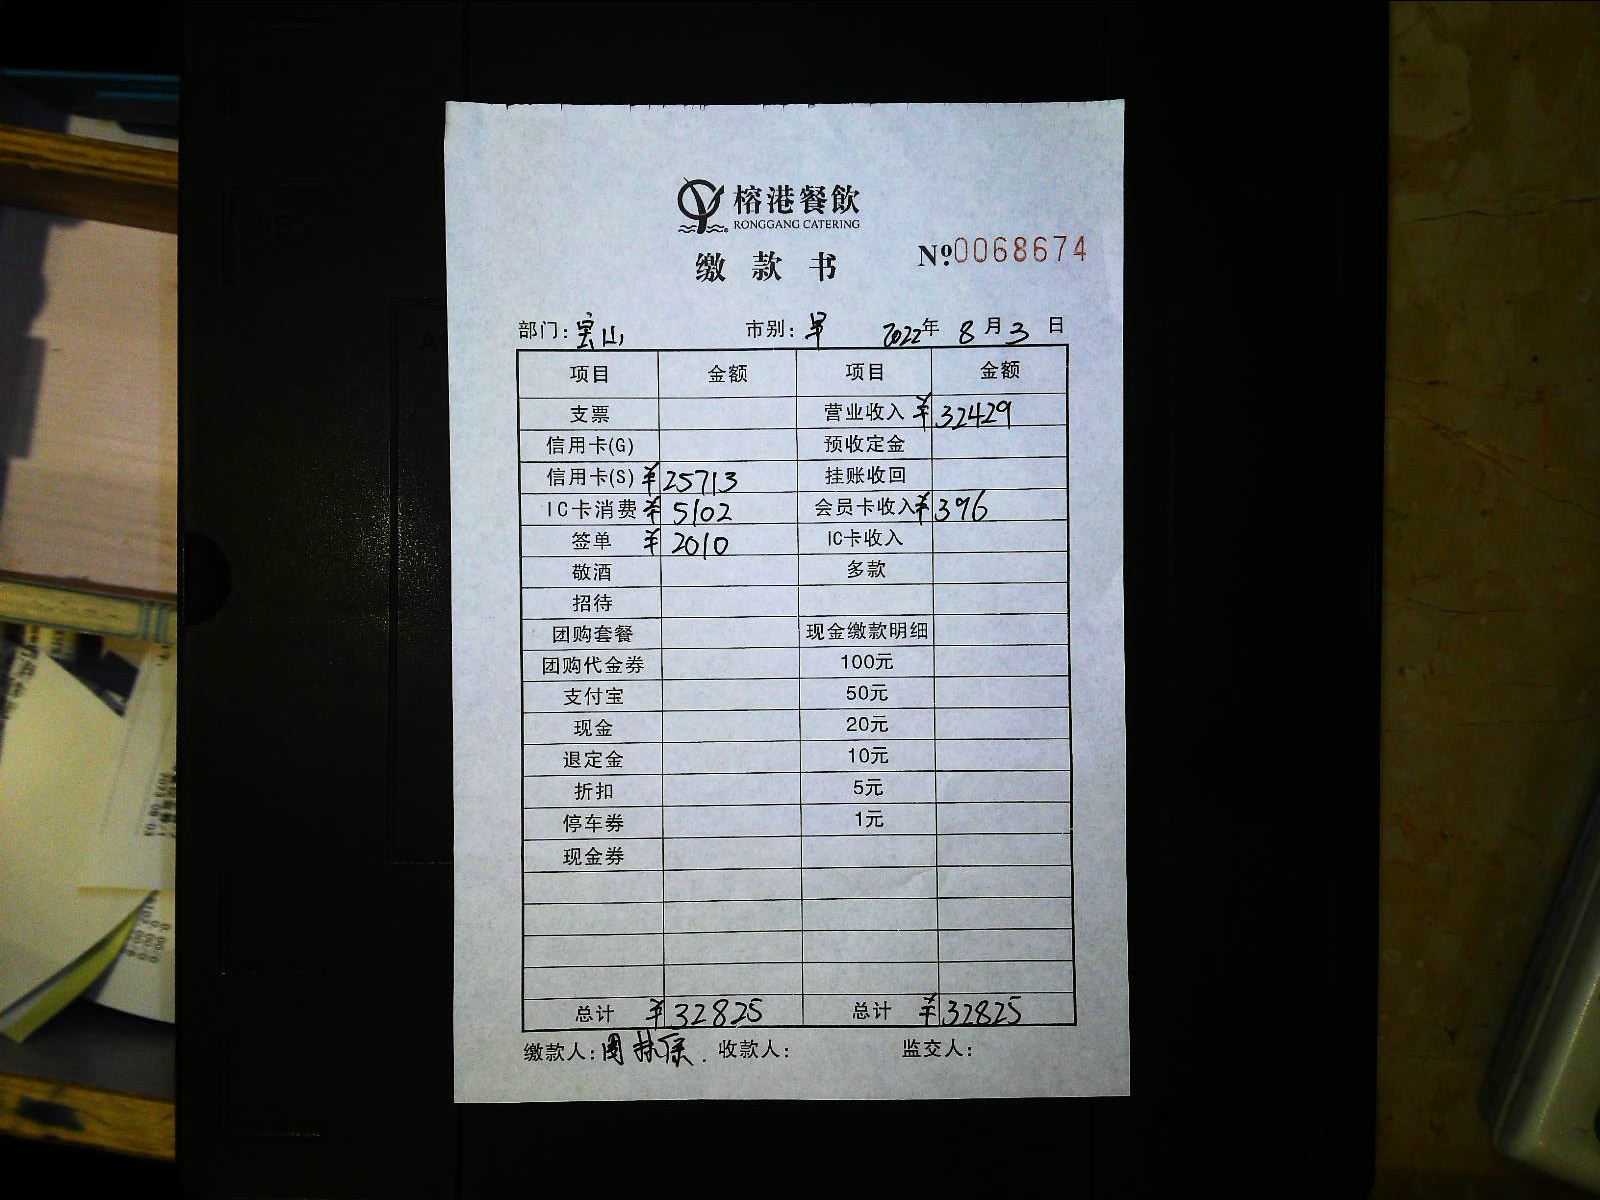 榕港餐飲
RONGGANG CATERING
缴款书 Nº0068674
部门：宝山 市别：早 2022年8月3日
项目 金额 项目 金额
支票 营业收入 ¥32429
信用卡(G) 预收定金
信用卡(S) ¥25713 挂账收回
IC卡消费 ¥5102 会员卡收入 ¥396
签单 ¥2010 IC卡收入
敬酒 多款
招待
团购套餐 现金缴款明细
团购代金券 100元
支付宝 50元
现金 20元
退定金 10元
折扣 5元
停车券 1元
现金券
总计 ¥32825 总计 ¥32825
缴款人： 收款人： 监交人：